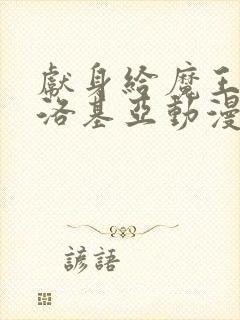 獻身給魔王
洛基亞動漫
諺語